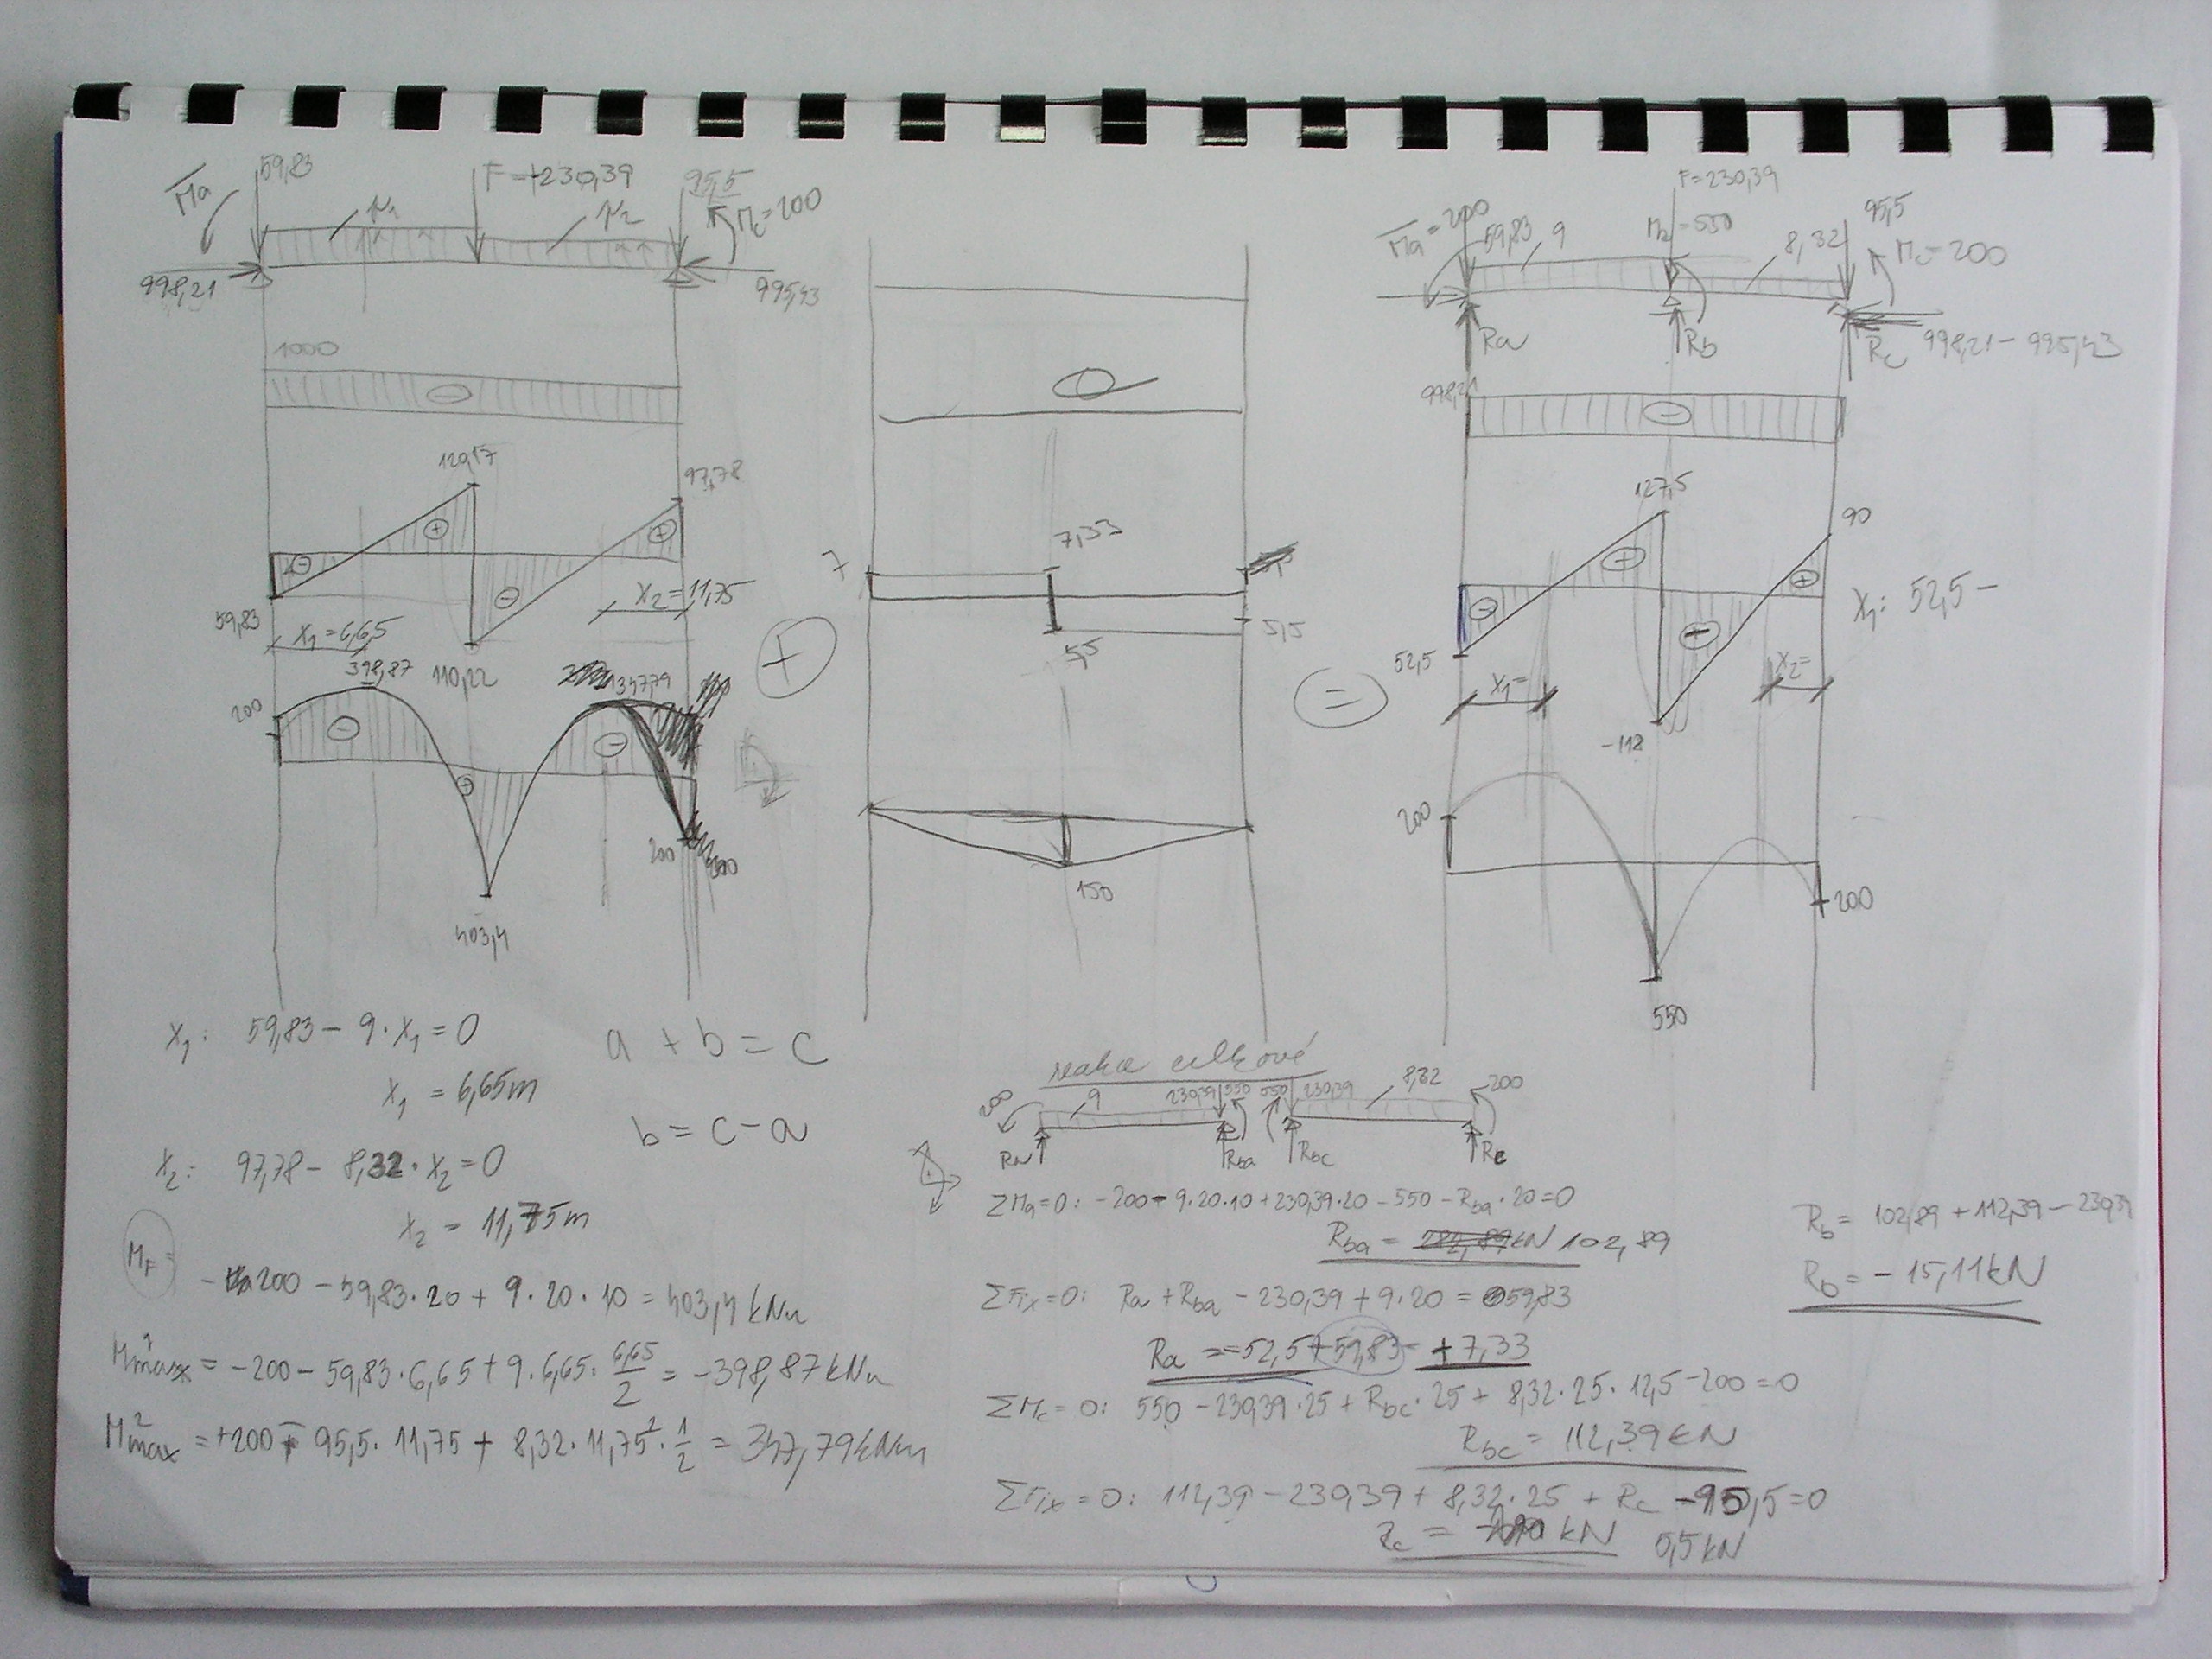 Ma
59,83
F=+230,39
95,5
Mc=200
998,21
995,43
1000
120,17
97,78
59,83
x1=6,65
x2=11,75
110,22
398,87
347,79
200
200
403,4
7
7,33
5,5
5,5
150
Ma=200
59,83
9
F=230,39
Mb=550
8,32
95,5
Mc=200
Ra
Rb
Rc
998,21-995,43
998,21
127,5
90
52,5
x1=
x2=
-118
x1: 52,5-
200
200
550
x1: 59,83-9·x1=0
x1=6,65m
x2: 97,78-8,32·x2=0
x2=11,75m
MF=
-200-59,83·20+9·20·10=403,4kNm
M1max=-200-59,83·6,65+9·6,65·6,65/2=-398,87kNm
M2max=+200-95,5·11,75+8,32·11,75²·1/2=347,79kNm
a+b=c
b=c-a
reakce celkové
200
9
230,39
550
550
230,39
8,32
200
Ra
Rba
Rbc
Rc
ΣMa=0: -200-9·20·10+230,39·20-550-Rba·20=0
Rba= 102,89
ΣFix=0: Ra+Rba-230,39+9·20=59,83
Ra=-52,5+59,83 +7,33
ΣMc=0: 550-230,39·25+Rbc·25+8,32·25·12,5-200=0
Rbc=112,39kN
ΣFix=0: 112,39-230,39+8,32·25+Rc-95,5=0
Rc= kN 5,5kN
Rb=102,89+112,39-230,39
Rb=-15,11kN